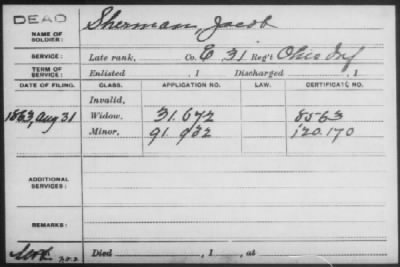 DEAD
NAME OF SOLDIER: Sherman, Jacob
SERVICE: Late rank, Co. E 31 Reg't Ohio Inf
TERM OF SERVICE: Enlisted , 1 Discharged , 1
DATE OF FILING. CLASS. APPLICATION NO. LAW. CERTIFICATE NO.
Invalid,
1863, Aug 31 Widow, 31.672 8563
Minor, 91.932 120.170
ADDITIONAL SERVICES:
REMARKS:
Died , 1 , at